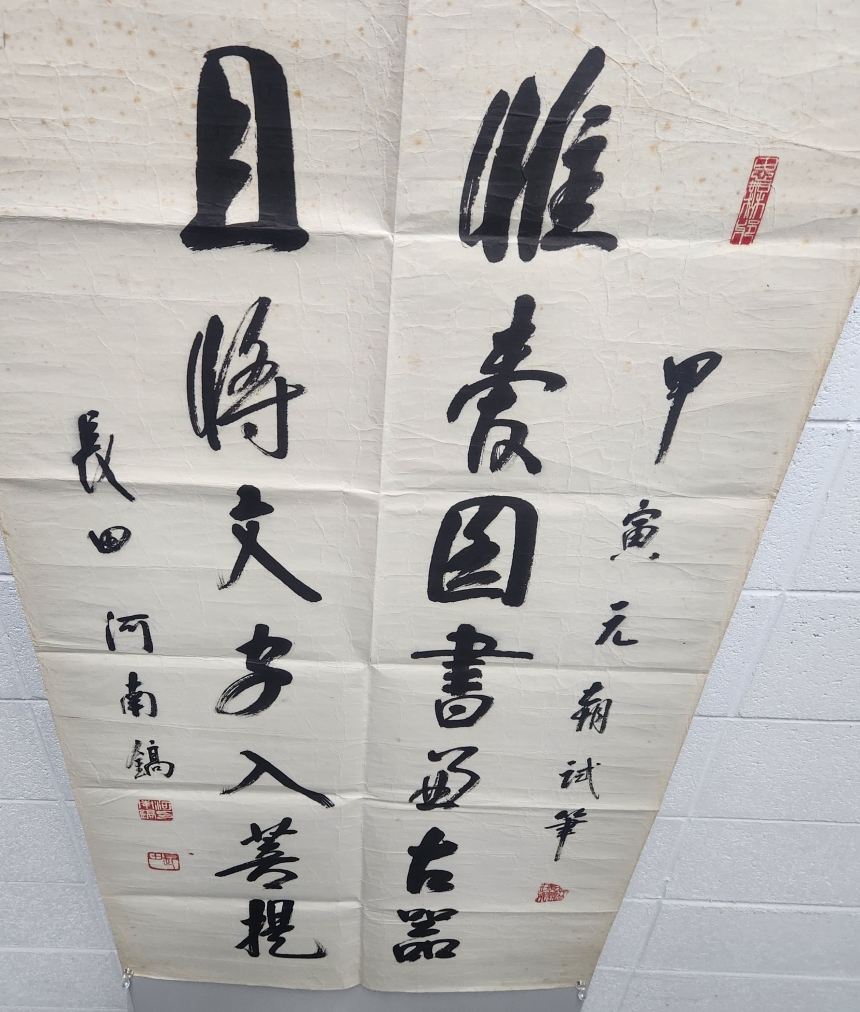 甲寅元朔試筆
惟愛圖書兼古器
且將文字入菩提
長田河南鎬